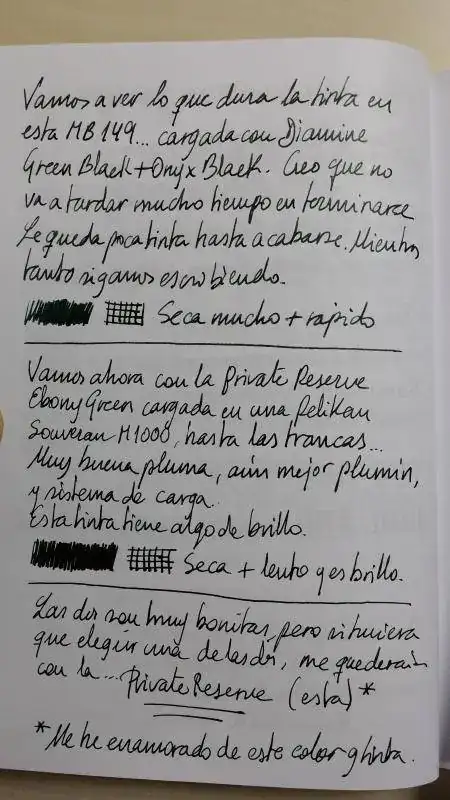 Vamos a ver lo que dura la tinta en
esta MB 149... cargada con Diamine
Green Black + Onyx Black. Creo que no
va a tardar mucho tiempo en terminarse
Le queda poca tinta hasta acabarse. Mientras
tanto sigamos escribiendo.
Seca mucho + rápido
Vamos ahora con la Private Reserve
Ebony Green cargada en una Pelikan
Souveran M1000, hasta las trancas...
Muy buena pluma, aún mejor plumín,
y sistema de carga.
Esta tinta tiene algo de brillo.
Seca + lento y es brillo.
Las dos son muy bonitas, pero si tuviera
que elegir una de las dos, me quedaría
con la... Private Reserve (esta)*
*Me he enamorado de este color y tinta.